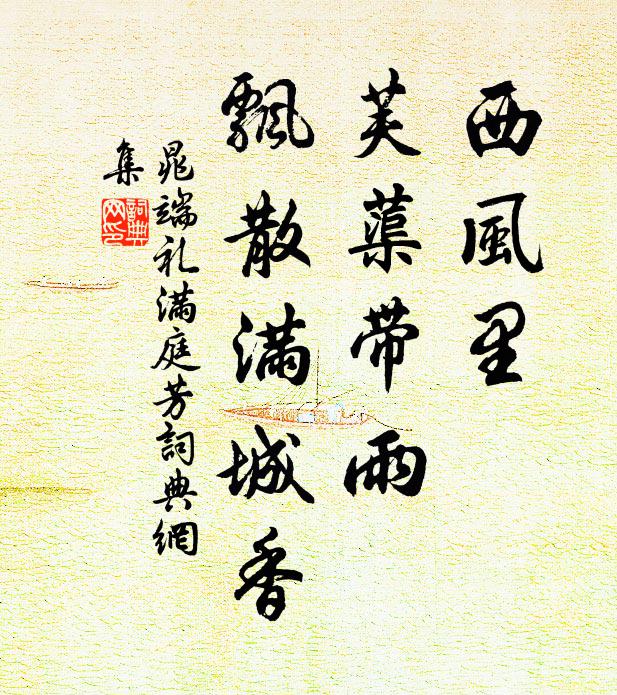 西風里
芙蕖带雨
飄散滿城香
晁端礼滿庭芳詞典網
集
詞典网印